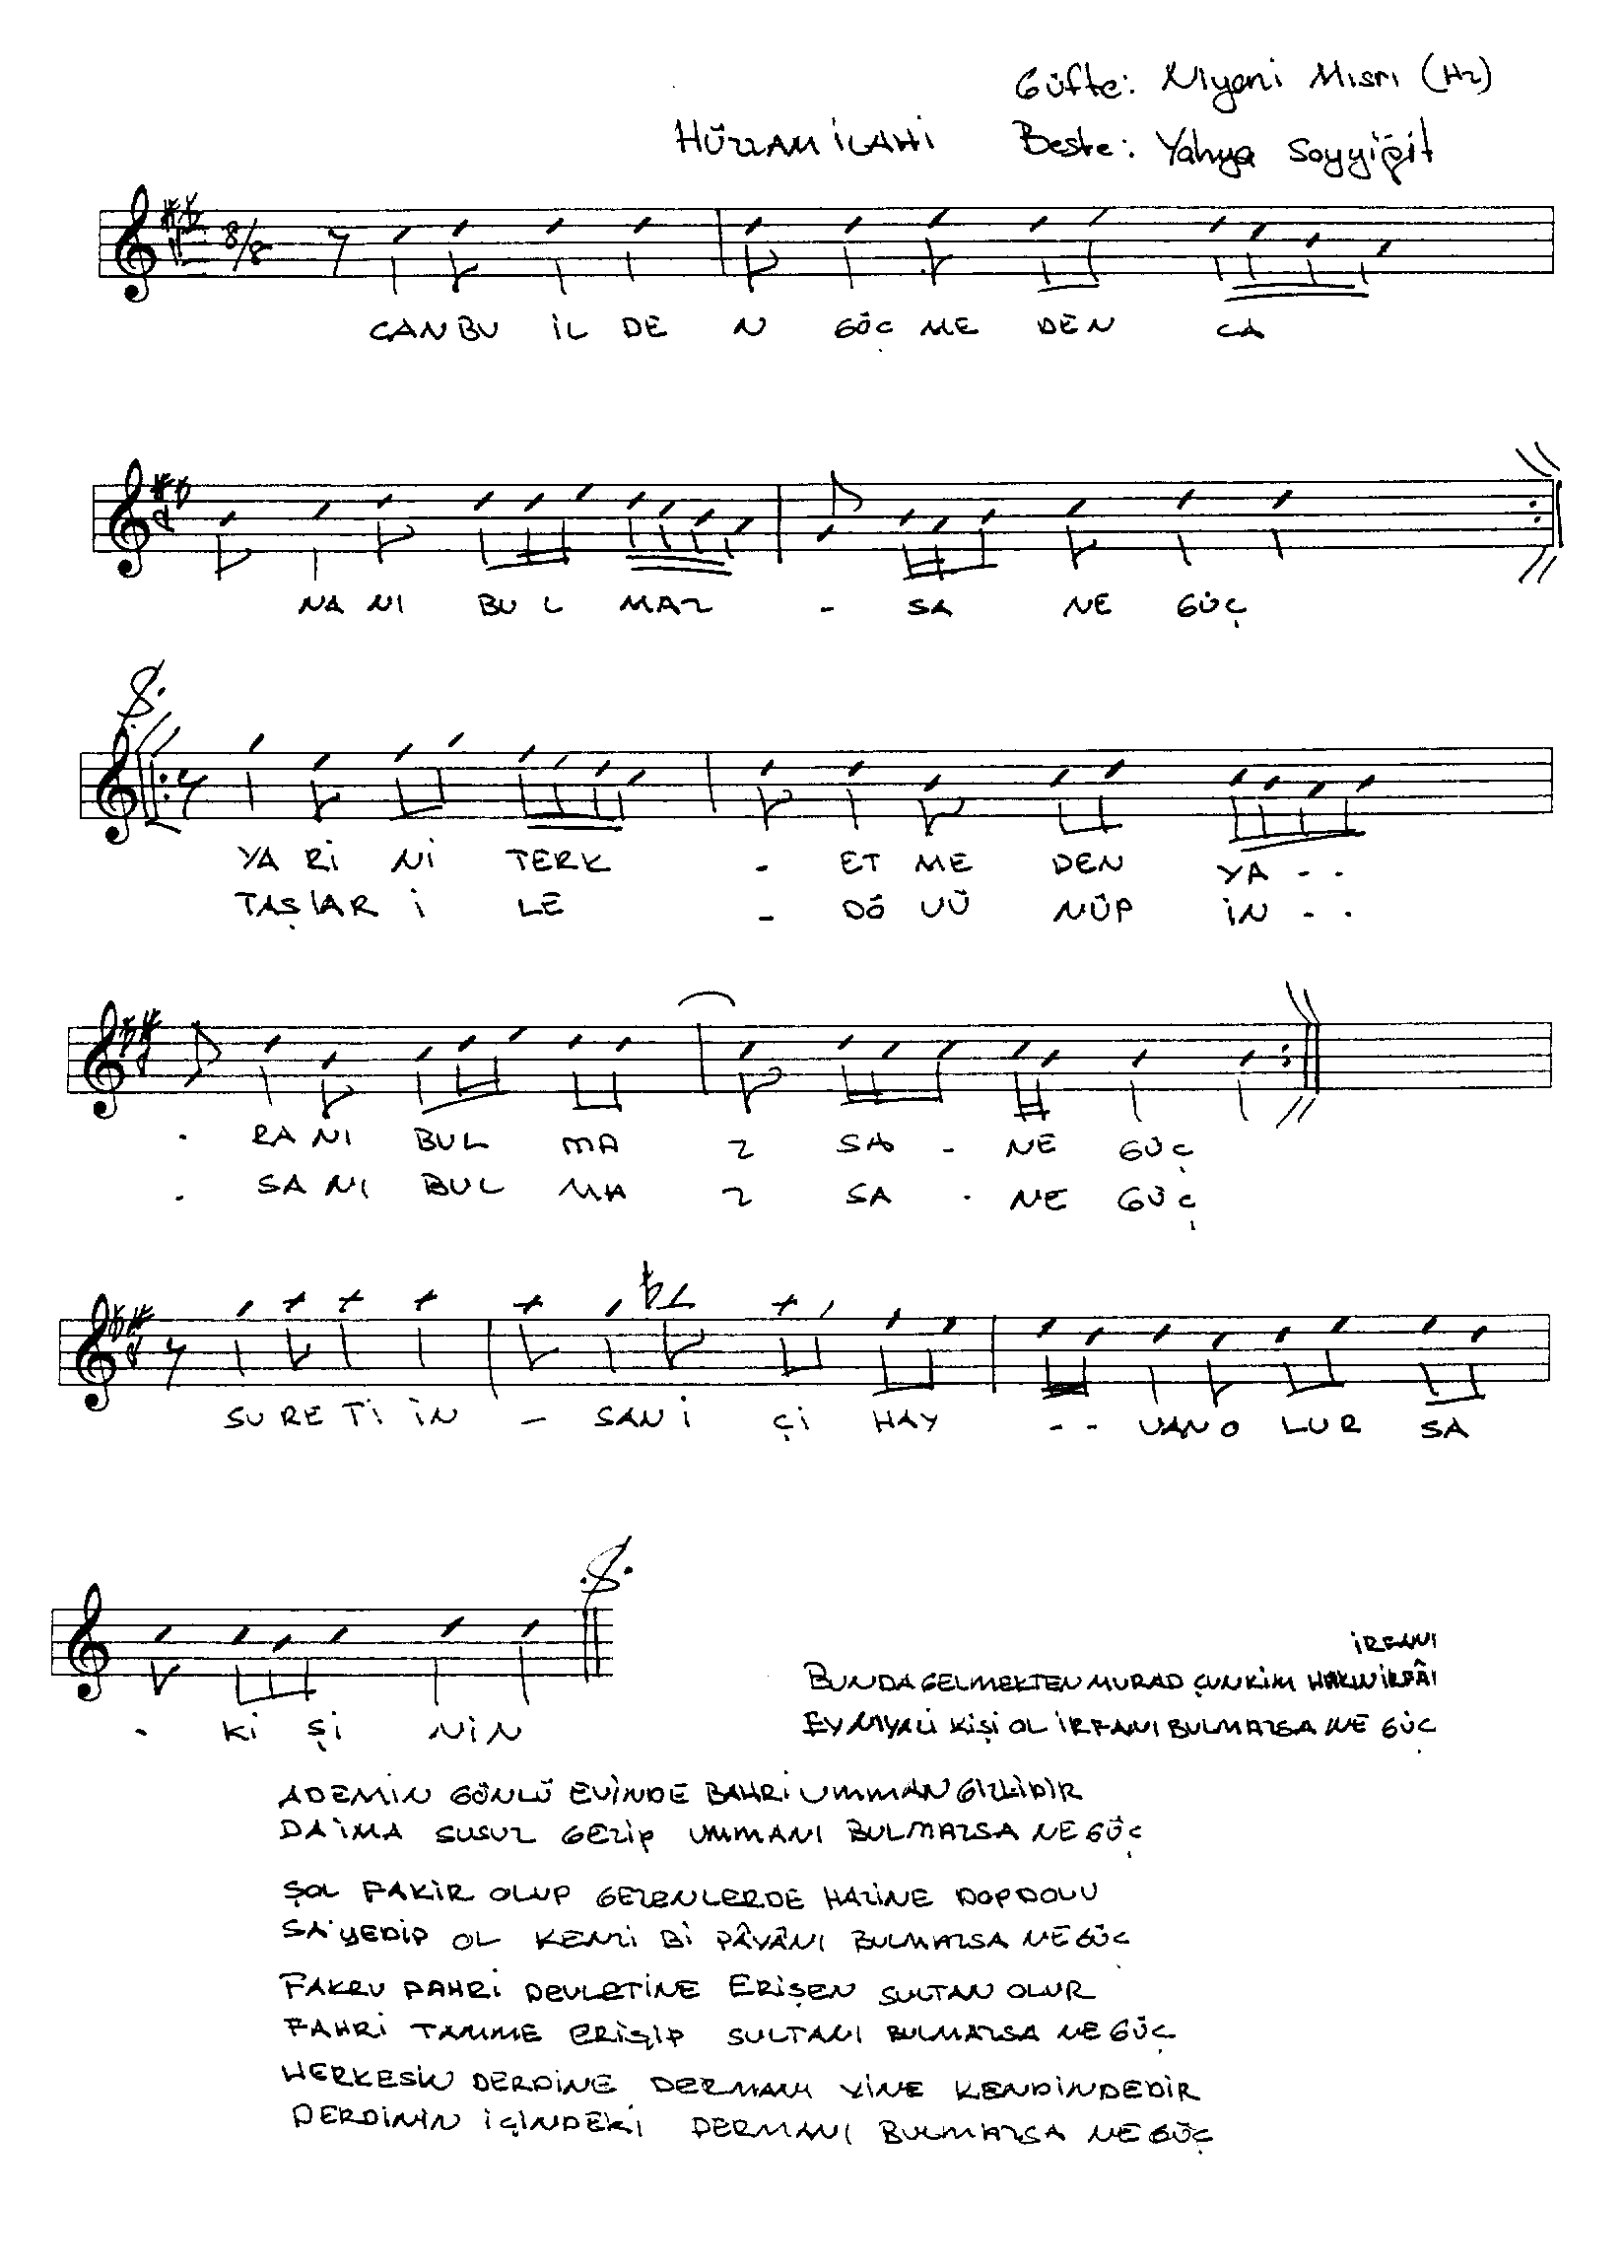 Güfte: Niyani Mısri (Hz)
HÜZZAM İLAHİ Beste: Yahya Soyyiğit
8/8
CAN BU İL DE N GÖÇ ME DEN CA
NA NI BU L MAZ - SA NE GÜÇ
YA Rİ Nİ TERK - ET ME DEN YA - -
TAŞLAR İ LE - DÖ VÜ NÜP İN - -
. RA NI BUL MA Z SA - NE GÜÇ
. SA NI BUL MA Z SA . NE GÜÇ
SU RE Tİ İN - SAN İ Çİ HAY - - VAN O LUR SA
- Kİ Şİ NİN
İRFANI
BUNDA GELMEKTEN MURAD ÇUNKİM HAKIN İRFÂI
EY NİYALİ KİŞİ OL İRFANI BULMAZSA NE GÜÇ
ADEMİN GÖNLÜ EVİNDE BAHRİ UMMAN GİZLİDİR
DAİMA SUSUZ GEZİP UMMANI BULMAZSA NE GÜÇ
ŞOL FAKİR OLUP GEZENLERDE HAZİNE DOPDOLU
SA'YEDİP OL KENZİ Bİ PÂYÂNI BULMAZSA NE GÜÇ
FAKRU FAHRİ DEVLETİNE ERİŞEN SULTAN OLUR
FAHRİ TAMME ERİŞİP SULTANI BULMAZSA NE GÜÇ
HERKESİN DERDİNE DERMANI YİNE KENDİNDEDİR
DERDİNİN İÇİNDEKİ DERMANI BULMAZSA NE GÜÇ